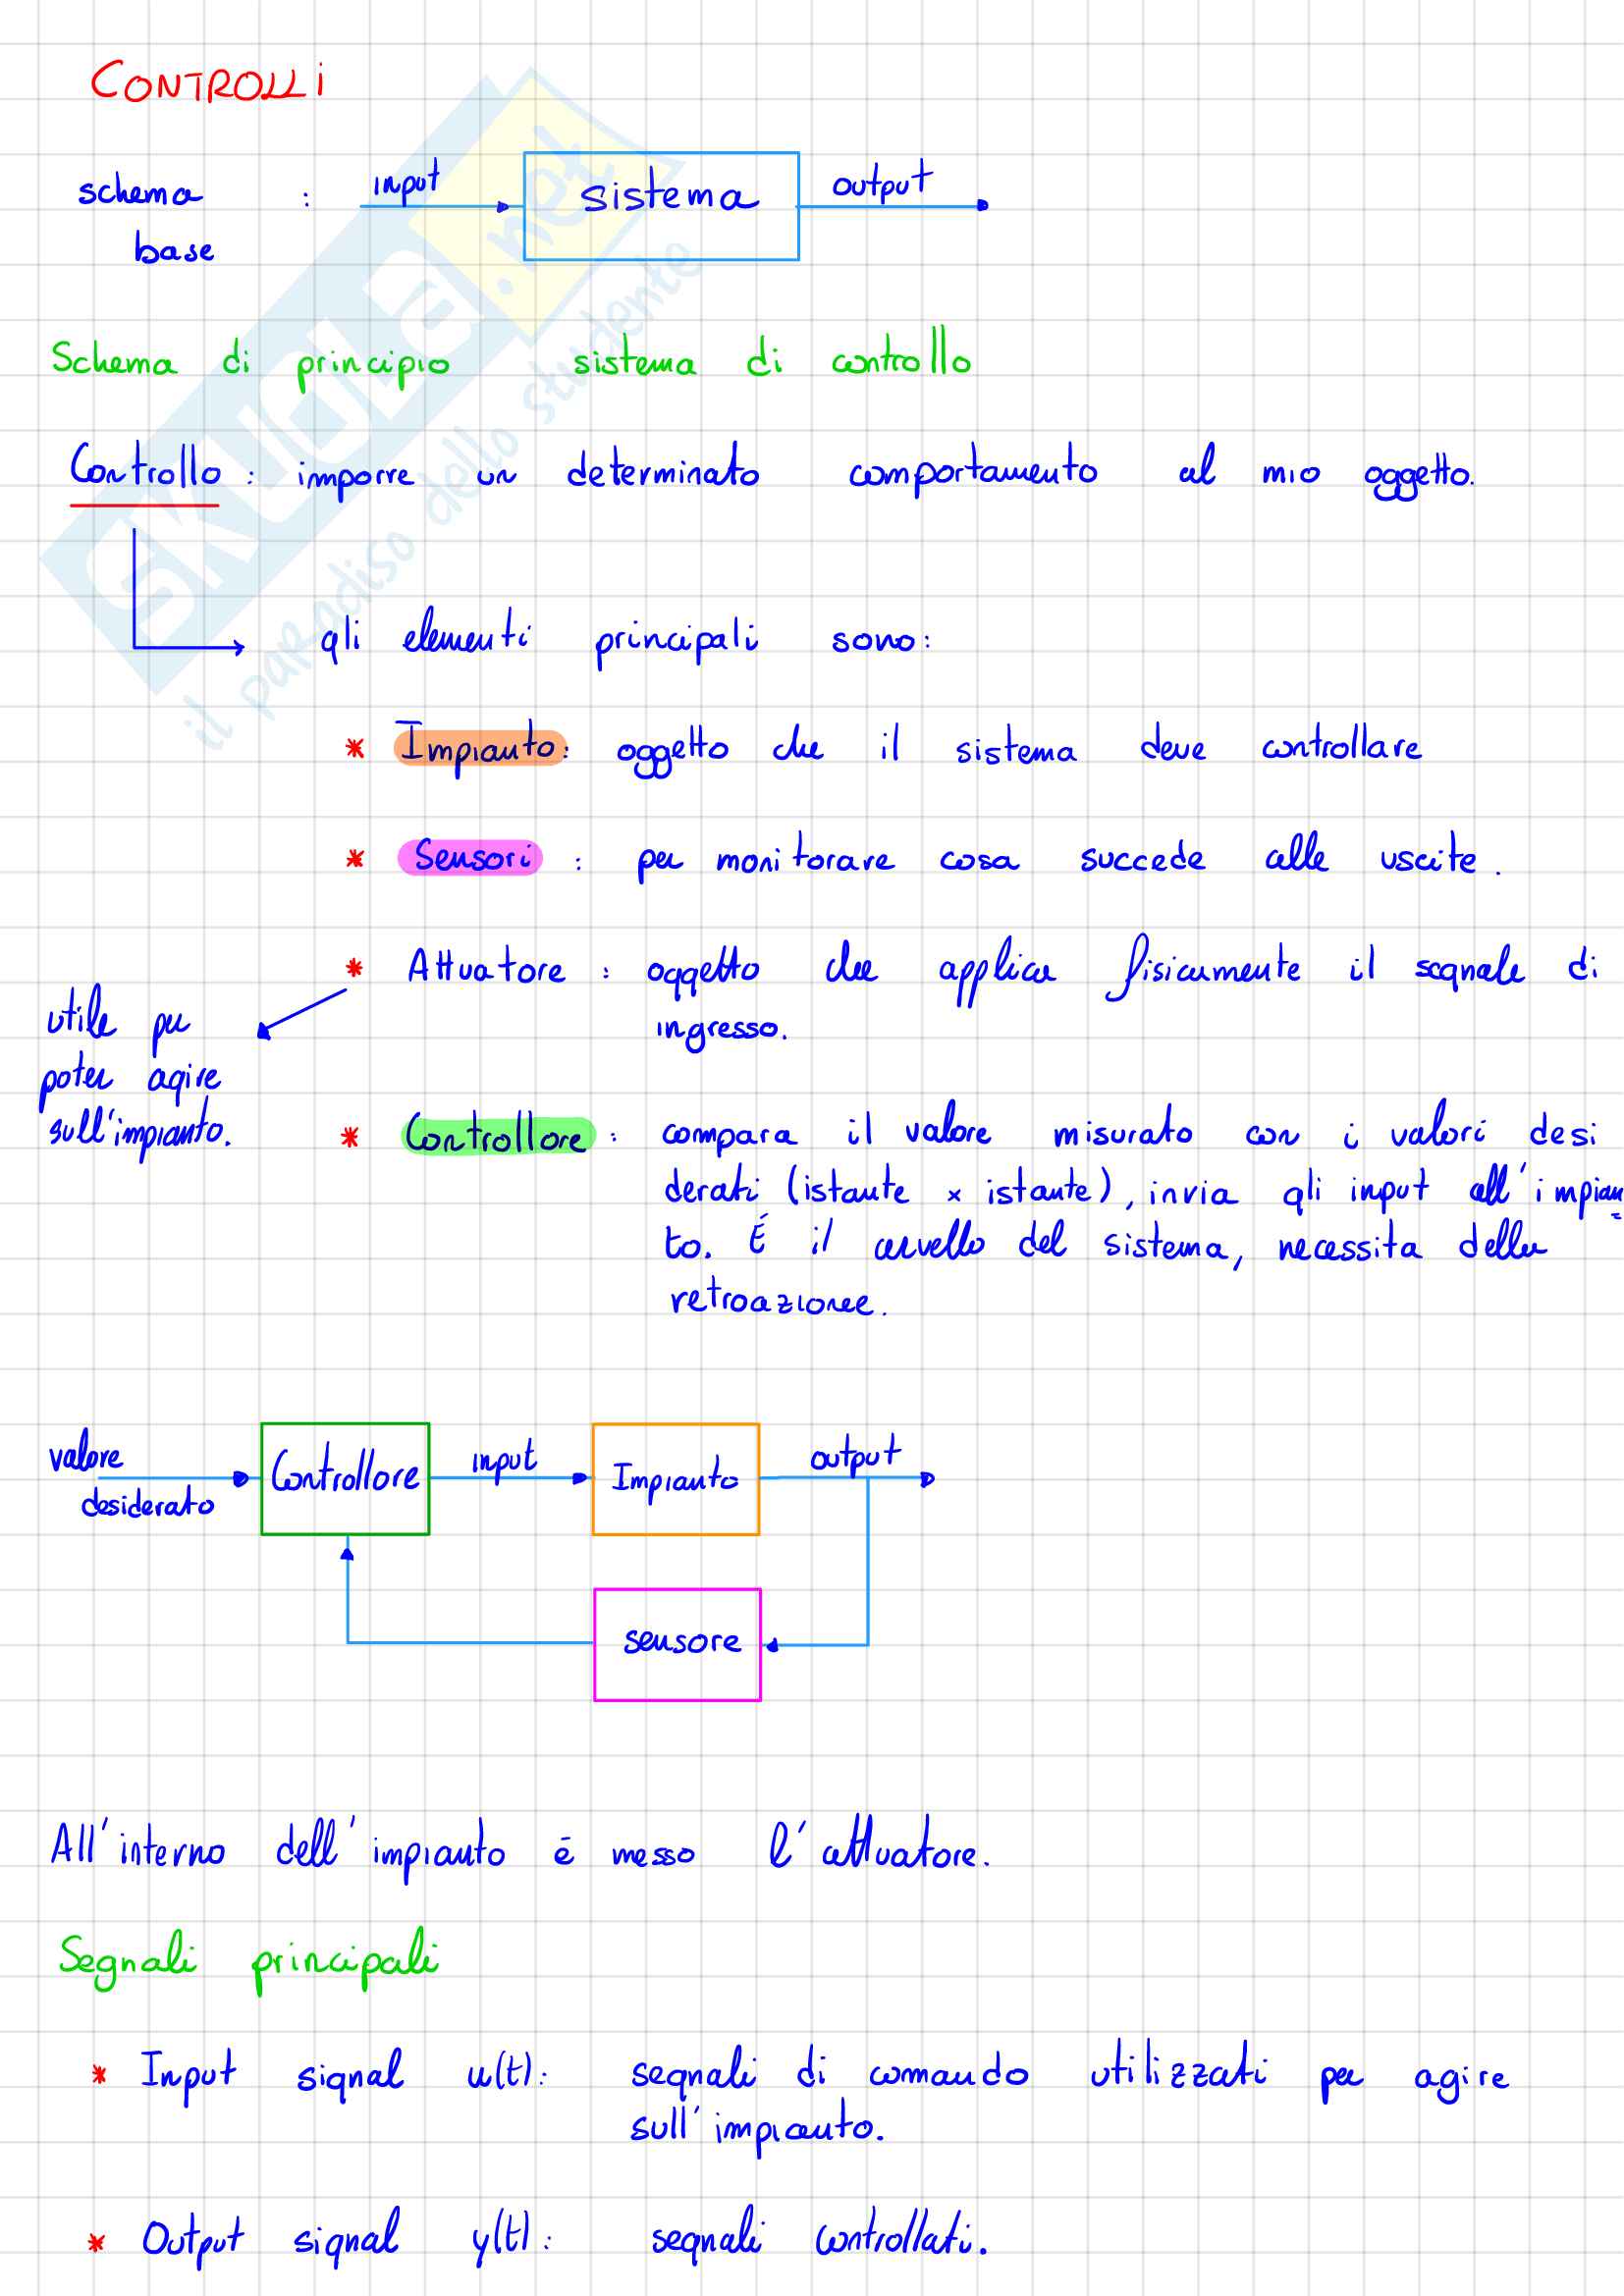 CONTROLLI
schema : input sistema output
base
Schema di principio sistema di controllo
Controllo : imporre un determinato comportamento al mio oggetto.
gli elementi principali sono:
* Impianto: oggetto che il sistema deve controllare
* Sensori : per monitorare cosa succede alle uscite.
* Attuatore : oggetto che applica fisicamente il segnale di
ingresso.
utile per
poter agire
sull'impianto.
* Controllore : compara il valore misurato con i valori desi
derati (istante x istante), invia gli input all'impian
to. É il cervello del sistema, necessita della
retroazionee.
valore
desiderato
Controllore input Impianto output
sensore
All'interno dell'impianto é messo l'attuatore.
Segnali principali
* Input signal u(t): segnali di comando utilizzati per agire
sull'impianto.
* Output signal y(t): segnali controllati.
SKUOLA.net
il paradiso dello studente